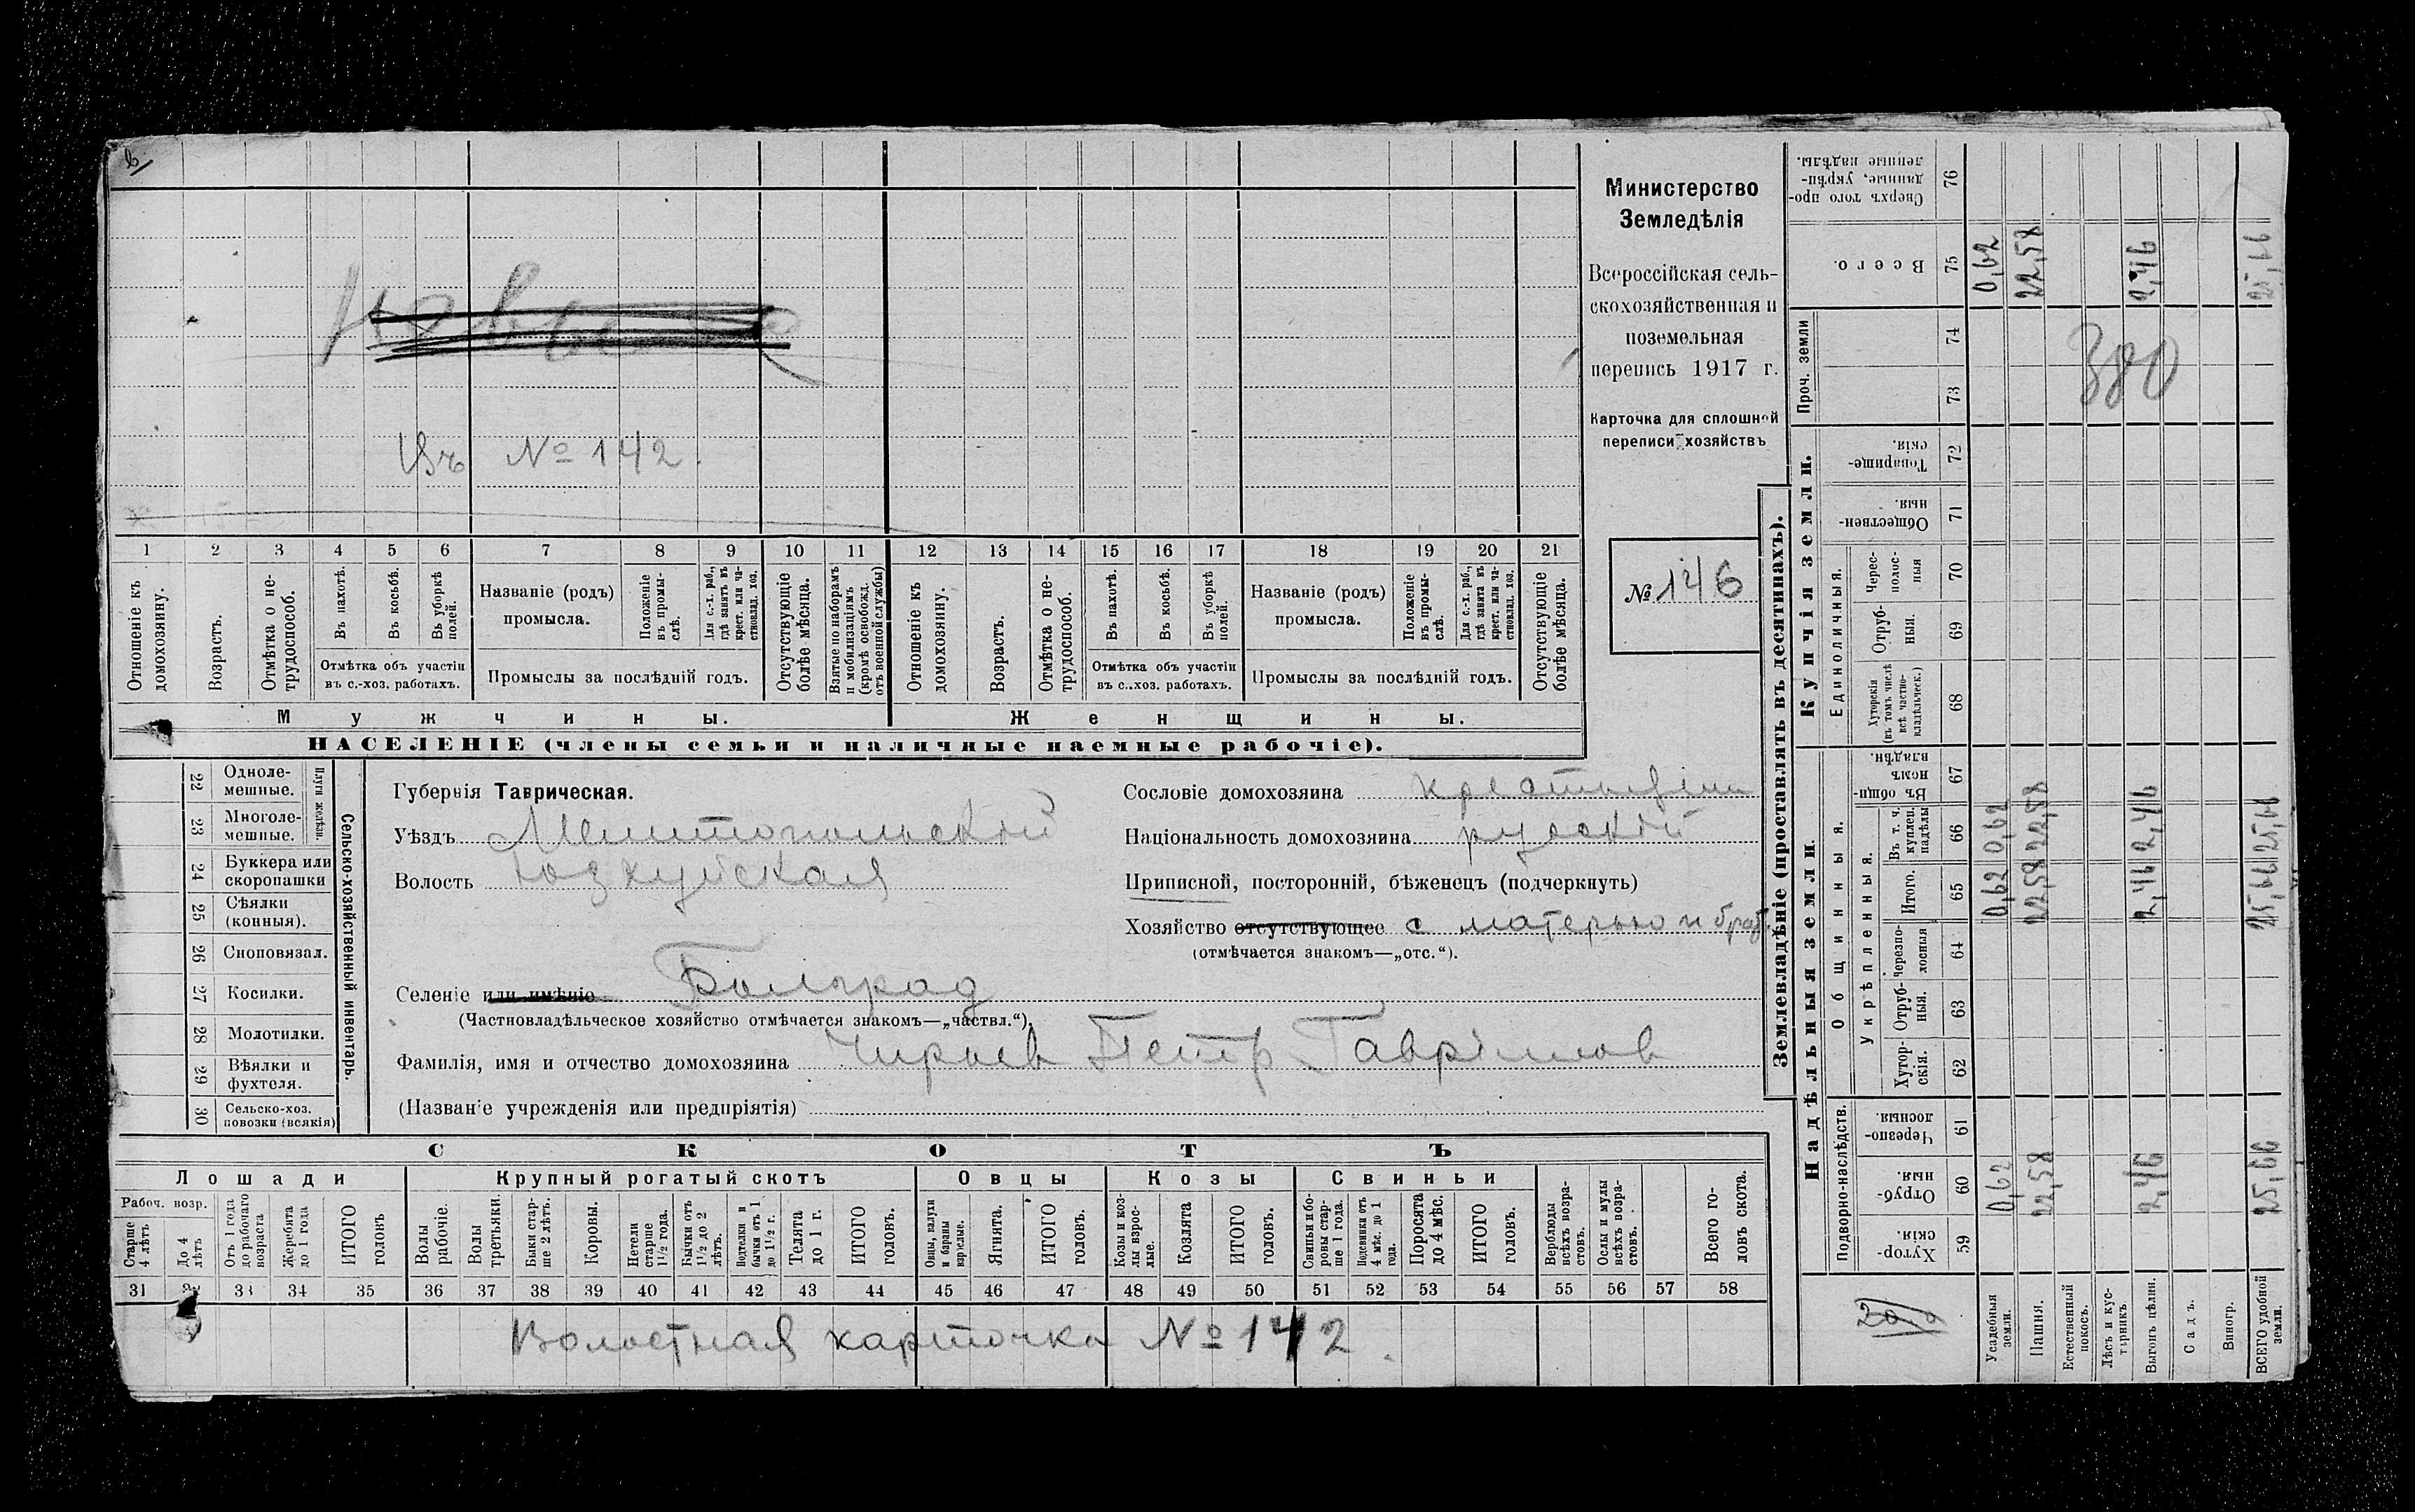 Министерство
Земледѣлія
Всероссійская сель-
скохозяйственная и
поземельная
перепись 1917 г.
Карточка для сплошной
переписи хозяйствъ
№ 146
Въ № 142.
1 2 3 4 5 6 7 8 9 10 11 12 13 14 15 16 17 18 19 20 21
Отношеніе къ домохозяину.
Возрастъ.
Отмѣтка о не-трудоспособ.
Въ пахотѣ.
Въ косьбѣ.
Въ уборкѣ полей.
Отмѣтка объ участіи
въ с.-хоз. работахъ.
Названіе (родъ)
промысла.
Положеніе въ промы-слѣ.
Для с.-х. раб., гдѣ занятъ въ крест. или ча-стновлад. хоз.
Промыслы за послѣдній годъ.
Отсутствующіе болѣе мѣсяца.
Взятые по наборамъ и мобилизаціямъ (кромѣ освобожд. отъ военной службы)
Отношеніе къ домохозяину.
Возрастъ.
Отмѣтка о не-трудоспособ.
Въ пахотѣ.
Въ косьбѣ.
Въ уборкѣ полей.
Отмѣтка объ участіи
въ с.-хоз. работахъ.
Названіе (родъ)
промысла.
Положеніе въ промы-слѣ.
Для с.-х. раб., гдѣ занята въ крест. или ча-стновлад. хоз.
Промыслы за послѣдній годъ.
Отсутствующіе болѣе мѣсяца.
Мужчины.
Женщины.
НАСЕЛЕНІЕ (члены семьи и наличные наемные рабочіе).
Сельско-хозяйственный инвентарь.
Плуги желѣзн.
22 Одноле-мешные.
23 Многоле-мешные.
24 Буккера или скоропашки
25 Сѣялки (конныя).
26 Сноповязал.
27 Косилки.
28 Молотилки.
29 Вѣялки и фухтеля.
30 Сельско-хоз. повозки (всякія)
Губернія Таврическая.
Уѣздъ Мелитопольскій
Волость Юзкуйская
Селеніе или имѣніе Болград
(Частновладѣльческое хозяйство отмѣчается знакомъ—„частвл.“).
Фамилія, имя и отчество домохозяина Чирыев Петр Гаврілов
(Названіе учрежденія или предпріятія)
Сословіе домохозяина крестьянін
Національность домохозяина рускій
Приписной, посторонній, бѣженецъ (подчеркнуть)
Хозяйство отсутствующее с матерью и брат.
(отмѣчается знакомъ—„отс.“).
СКОТЪ
Лошади
Крупный рогатый скотъ
Овцы
Козы
Свиньи
Рабоч. возр.
Старше 4 лѣтъ
До 4 лѣтъ
Отъ 1 года до рабочаго возраста
Жеребята до 1 года
ИТОГО головъ
Волы рабочіе.
Волы третьяки.
Быки стар-ше 2 лѣтъ.
Коровы.
Нетели старше 1½ года.
Бычки отъ 1½ до 2 лѣтъ.
Подтелки и бычки отъ 1 до 1½ г.
Телята до 1 г.
ИТОГО головъ.
Овцы, валухи и бараны взрослые.
Ягнята.
ИТОГО головъ.
Козы и коз-лы взрос-лые.
Козлята
ИТОГО головъ.
Свиньи и бо-ровы стар-ше 1 года.
Подсвинки отъ 4 мѣс. до 1 года.
Поросята до 4 мѣс.
ИТОГО головъ.
Верблюды всѣхъ возра-стовъ.
Ослы и мулы всѣхъ возра-стовъ.
Всего го-ловъ скота.
31 32 33 34 35 36 37 38 39 40 41 42 43 44 45 46 47 48 49 50 51 52 53 54 55 56 57 58
Волостная карточка № 142.
Землевладѣніе (проставлять въ десятинахъ).
Надѣльныя земли.
Купчія земли.
Проч. земли
Подворно-наслѣдств.
Общинныя.
Укрѣпленныя.
Единоличныя.
Хутор-скія. 59
Отруб-ныя. 60
Черезпо-лосныя 61
Хутор-скія. 62
Отруб-ныя. 63
Черезпо-лосныя 64
Итого. 65
Въ т. ч. куплен. надѣлы 66
Въ общин-номъ владѣн. 67
Хуторскія (въ томъ числѣ всѣ частно-владѣльческ.) 68
Отруб-ныя. 69
Черес-полос-ныя 70
Обществен-ныя. 71
Товарище-скія. 72
73
74
Всего. 75
Сверхъ того про-данные, укрѣп-ленные надѣлы. 76
Усадебныя земли. 0,62 0,62 0,62 0,62
Пашня. 22,58 22,58 22,58 22,58
Естественный покосъ.
Лѣсъ и кус-тарникъ
Выгонъ цѣлин. 2,46 2,46 2,46 2,46
Садъ.
Виногр.
ВСЕГО удобной земли. 25,66 25,66 25,66 25,66
380